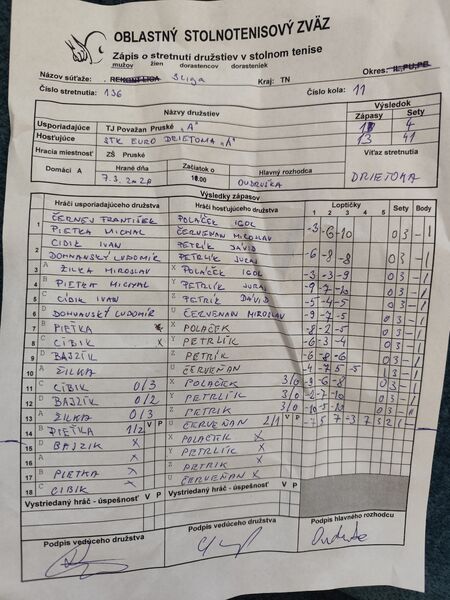 OBLASTNÝ STOLNOTENISOVÝ ZVÄZ
Zápis o stretnutí družstiev v stolnom tenise
mužov žien dorastencov dorasteniek
Názov súťaže: 3liga Kraj: TN Okres:
Číslo stretnutia: 136 Číslo kola: 11
Názvy družstiev Výsledok
Zápasy Sety
Usporiadajúce TJ Považan Pruské "A" 4
Hosťujúce STK EURO DRIETOMA "A" 13 41
Hracia miestnosť ZŠ Pruské Víťaz stretnutia
Domáci A Hrané dňa Začiatok o Hlavný rozhodca DRIETOMA
10.00 ONDRUŠKA
Výsledky zápasov
Hráči usporiadajúceho družstva Hráči hosťujúceho družstva Loptičky Sety Body
1 2 3 4 5
1 ČERNEJ FRANTIŠEK POLAČEK IGOL -3 -6 -10 0 3 - 1
PIETKA MICHAL ČERVEŇAN MIROSLAV
2 CIBIK IVAN PETRÍK DÁVID -6 -8 -8 0 3 - 1
DOMVANSKÝ ĽUDOMÍR PETRLÍK JURAJ
3 A ŽILKA MIROSLAV X POLAČEK IGOL -3 -3 -9 0 3 - 1
4 B PIETKA MICHAL Y PETRLÍK JURAJ -9 -7 -10 0 3 - 1
5 C CIBIK IVAN Z PETRÍK DÁVID -5 -4 -5 0 3 - 1
6 D DOMVANSKÝ ĽUDOMÍR U ČERVEŇAN MIROSLAV -9 -7 -5 0 3 - 1
7 B PIETKA X POLAČEK -8 -2 -5 0 3 - 1
8 C CIBIK Y PETRLÍK -6 -3 -4 0 3 - 1
9 D BAJZÍK Z PETRÍK -6 -8 -6 0 3 - 1
10 A ŽILKA U ČERVEŇAN
11 C CIBIK 0/3 X POLAČEK 3/0 -9 -6 -8 0 3 - 1
12 D BAJZLIK 0/2 Y PETRLÍK 3/0 -2 -7 -10 0 3 - 1
13 A ŽILKA 0/3 Z PETRIK 3/0 -10 -5 -10 0 3 - 1
14 B PIETKA 1/2 U ČERVEŇAN 2/1
15 D BAJZIK X X POLAČIK X
16 A X Y PETRLIK X
17 B PIETKA X Z PETRIK X
18 C CIBIK X U ČERVEŇAN X
Vystriedaný hráč - úspešnosť V P Vystriedaný hráč - úspešnosť V P
Podpis vedúceho družstva Podpis vedúceho družstva Podpis hlavného rozhodcu